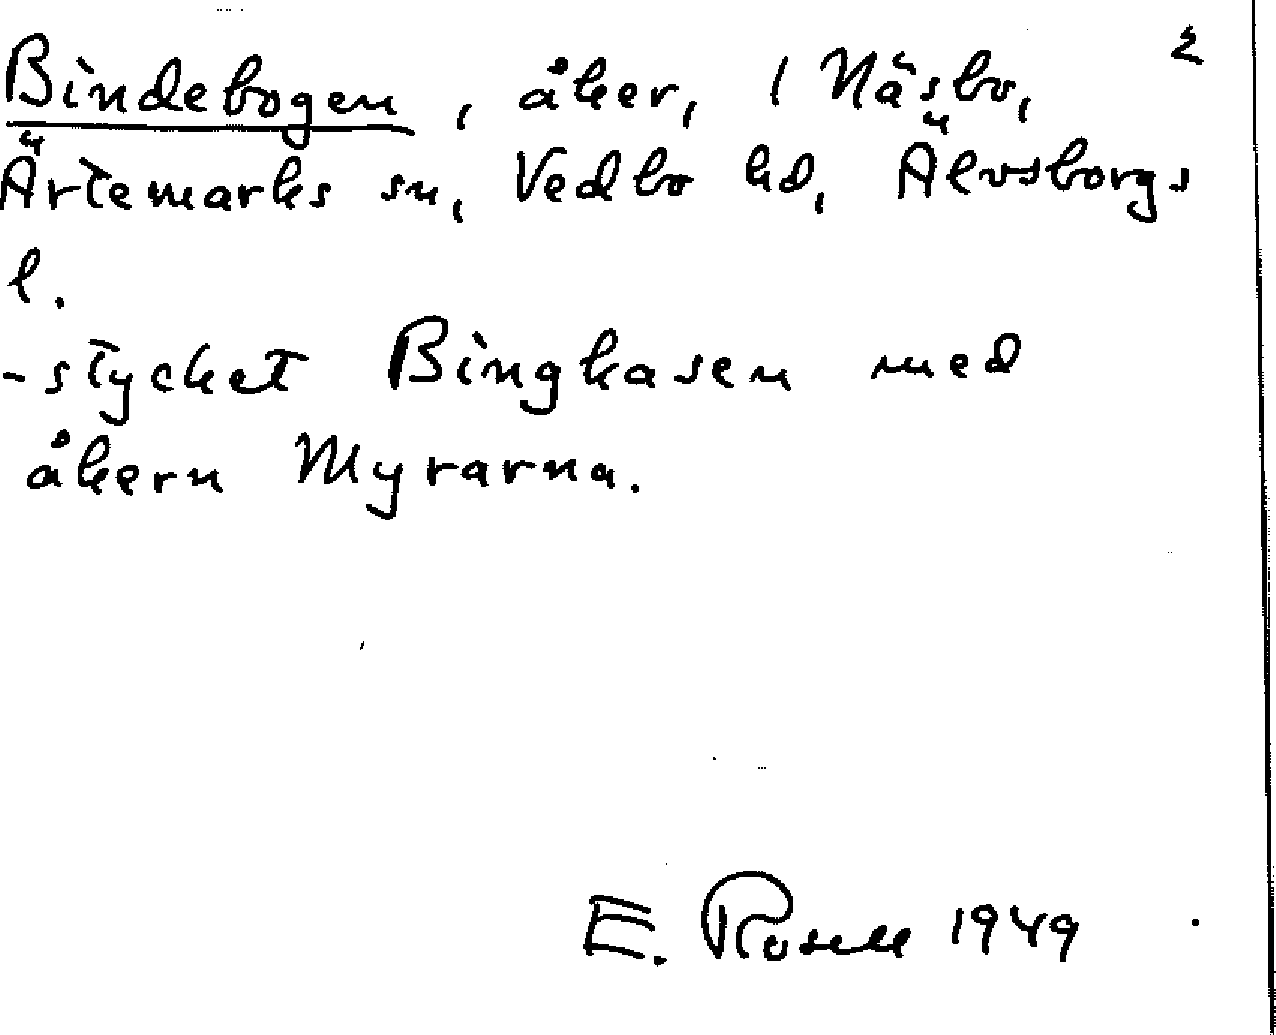 2
Bindebogen, åker, / Näsbo,
Ärtemarks sn, Vedbo hd, Älvsborgs
l.
-stycket Bingkasen med
åkern Myrarna.
E. Rosell 1949